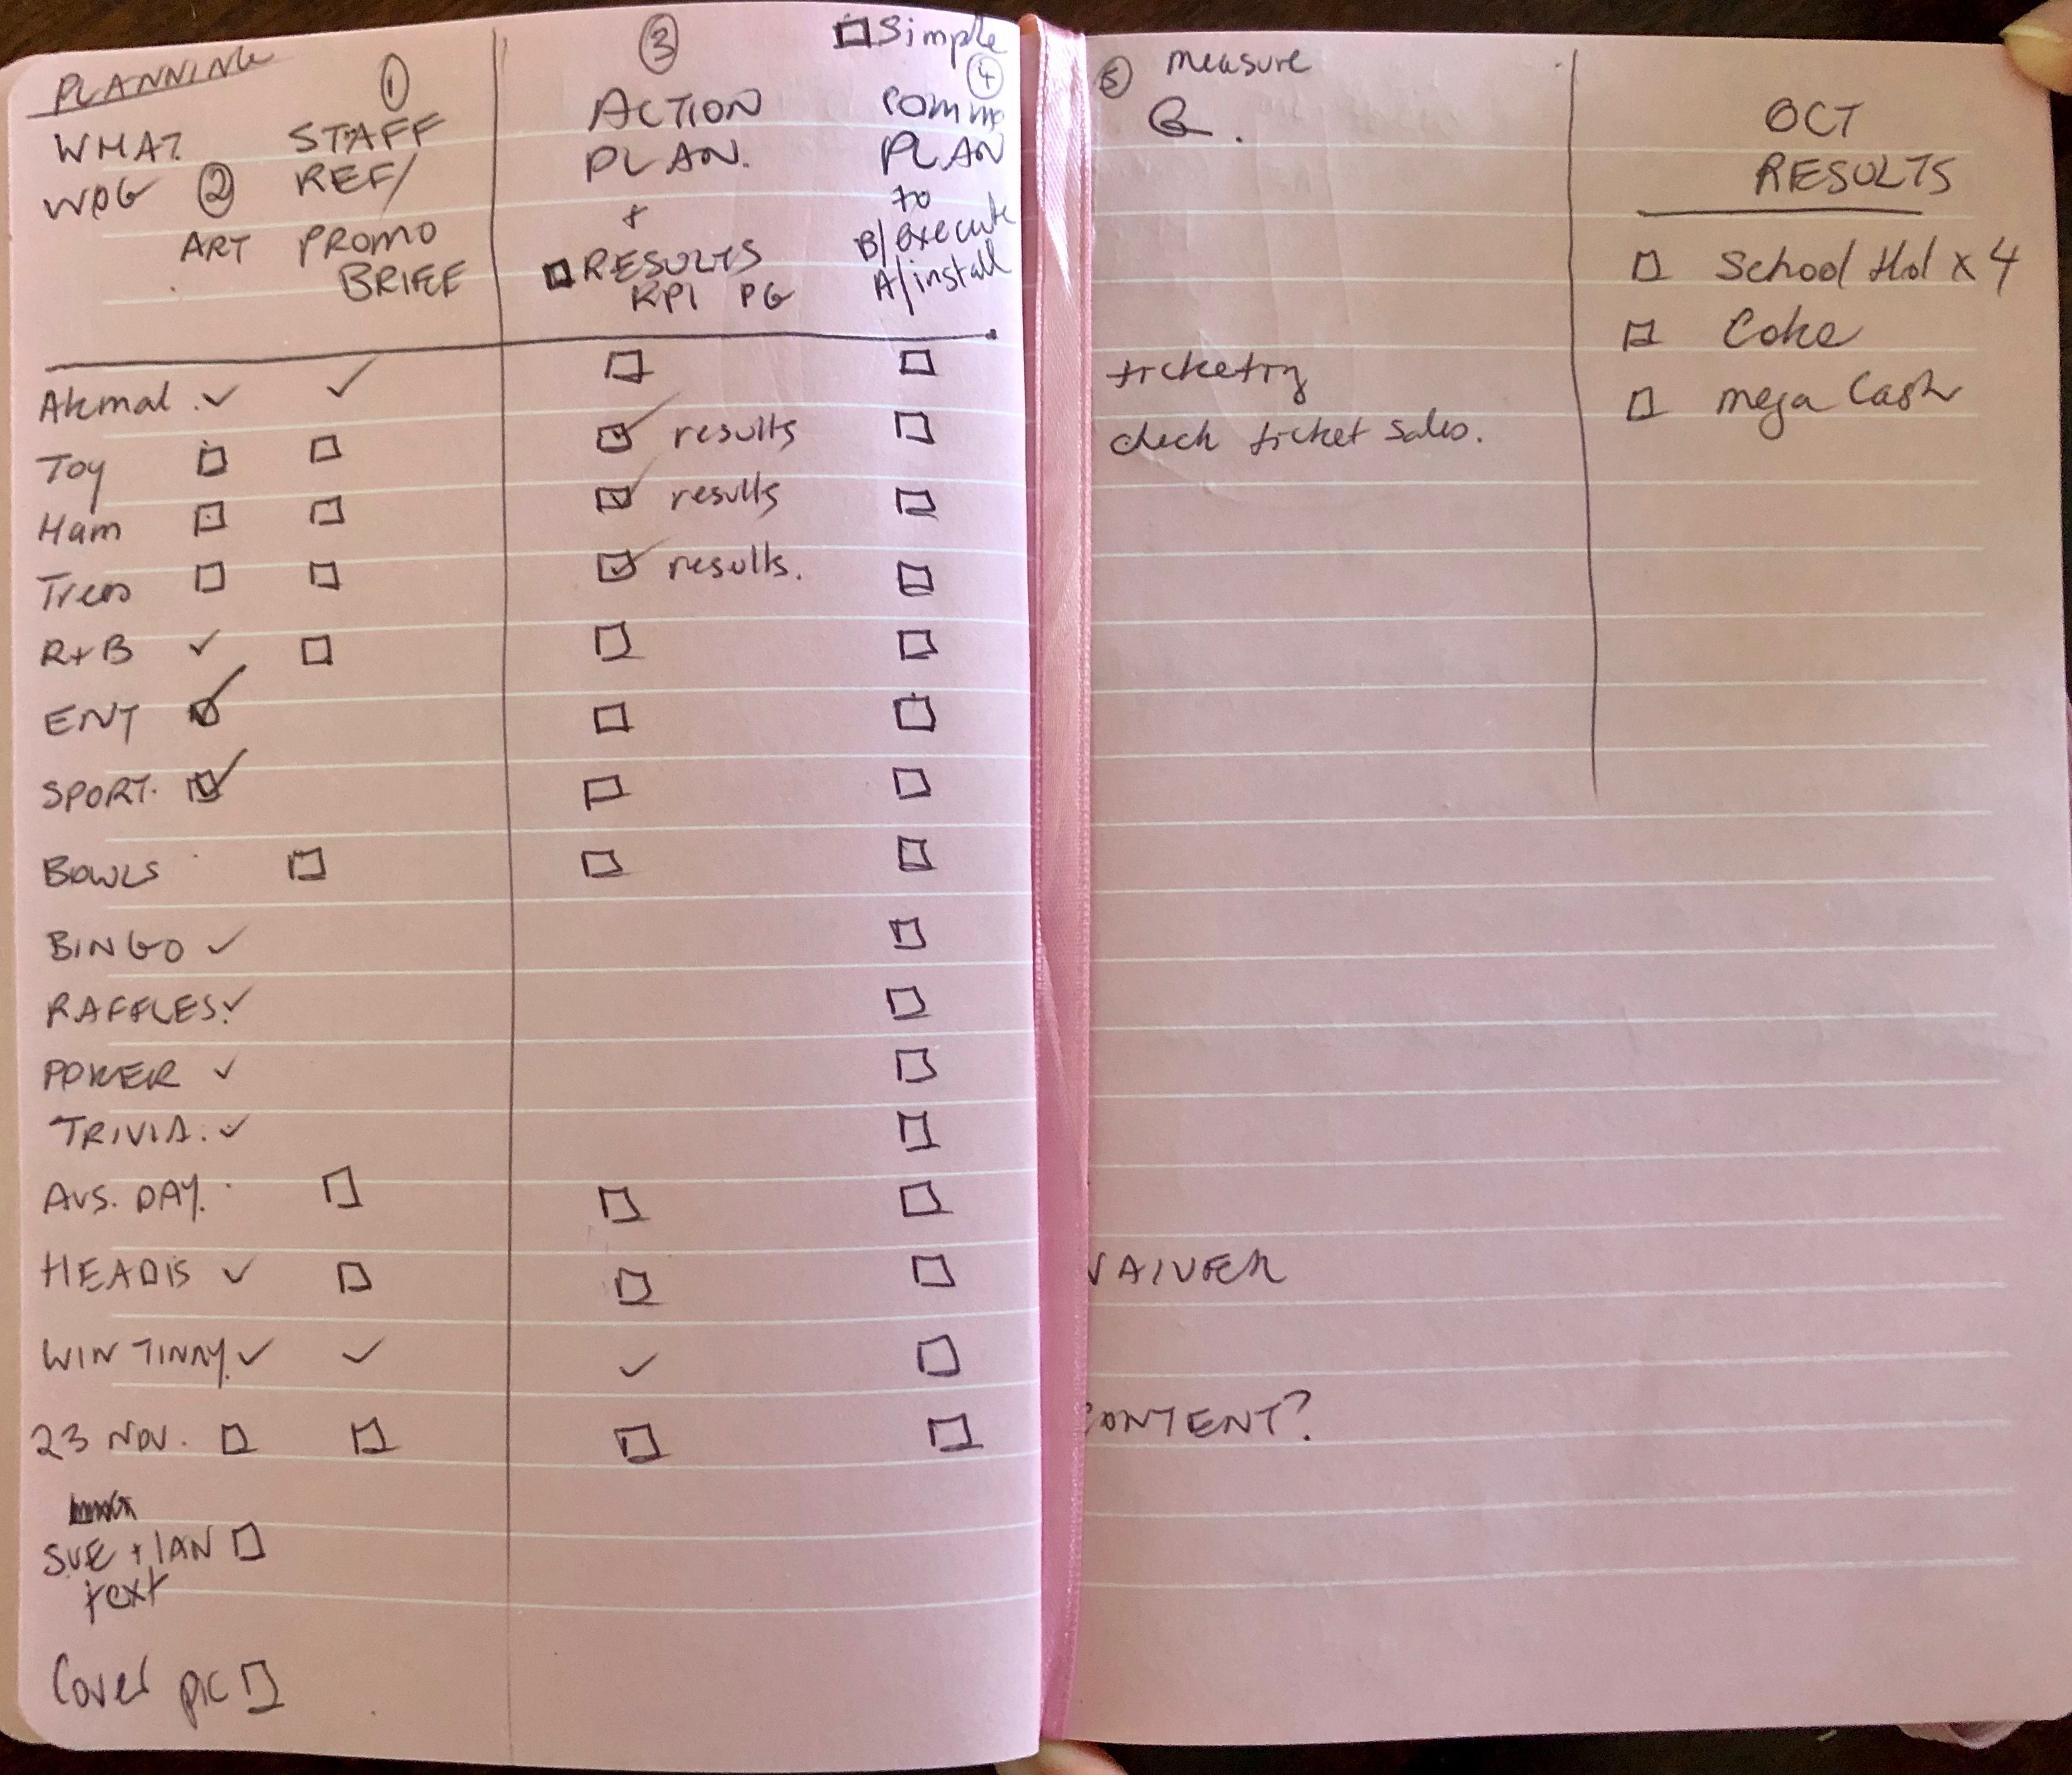 PLANNING
WHAT
WOG
② ART
① STAFF
REF/
PROMO
BRIEF
③
ACTION
PLAN.
+
☐ RESULTS
KPI PG
☐ Simple
④
COMMS
PLAN
to
B/execute
A/install
Akmal ✓ ✓ ☐ ☐
Toy ☐ ☐ ☑ results ☐
Ham ☐ ☐ ☑ results ☐
Trees ☐ ☐ ☑ results. ☐
R+B ✓ ☐ ☐ ☐
ENT ☑ ☐ ☐
SPORT. ☑ ☐ ☐
BOWLS ☐ ☐ ☐
BINGO ✓ ☐
RAFFLES. ✓ ☐
POKER ✓ ☐
TRIVIA. ✓ ☐
AUS. DAY. ☐ ☐ ☐
HEADIS ✓ ☐ ☐ ☐
WIN TINNY. ✓ ✓ ✓ ☐
23 NOV. ☐ ☐ ☐ ☐
SUE + IAN ☐
text
Cover pic ☐
⑤ measure
Q.
ticketing
check ticket sales.
WAIVER
CONTENT?
OCT
RESULTS
☐ School Hol x 4
☐ Coke
☐ mega Cash